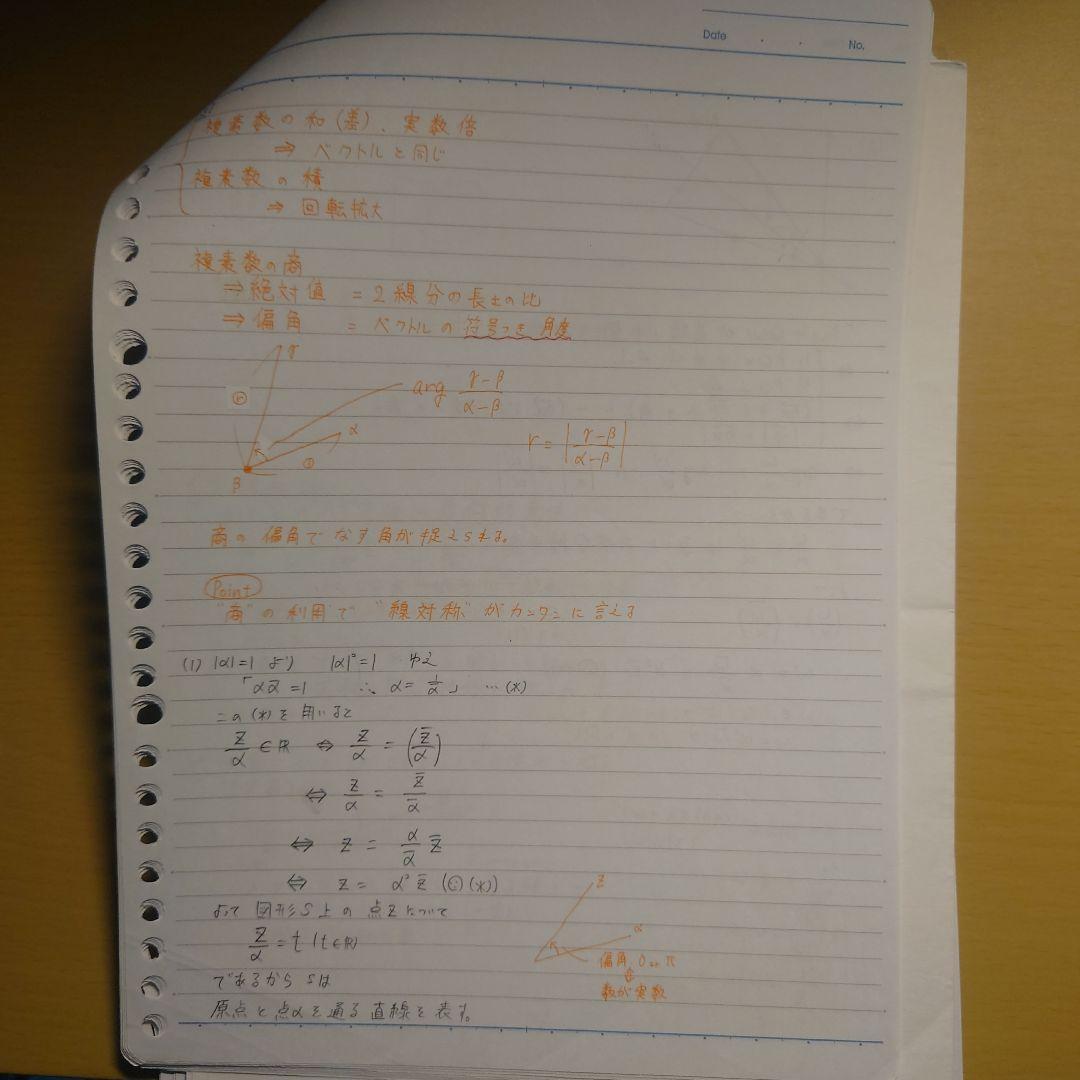 Date . . No.
複素数の和(差)、実数倍
⇒ ベクトルと同じ
複素数の積
⇒ 回転拡大
複素数の商
⇒ 絶対値 = 2線分の長さの比
⇒ 偏角 = ベクトルの符号つき角度
γ
ⓡ
arg (γ-β)/(α-β)
α
①
β
r = |(γ-β)/(α-β)|
商の偏角でなす角が捉えられる。
Point
"商"の利用で"線対称"がカンタンに言える
(1) |α|=1 より |α|²=1 ゆえ
「αᾱ=1 ∴ α=1/ᾱ」 …(*)
この(*)を用いると
z/α ∈ ℝ ⇔ z/α = (z̄/α)
⇔ z/α = z̄/ᾱ
⇔ z = α/ᾱ z̄
⇔ z = α² z̄ (∵(*))
よって 図形S上の点zについて
z/α = t (t∈ℝ)
であるから Sは
原点と点αを通る直線を表す。
z
α
偏角 0 or π
⇕
数が実数